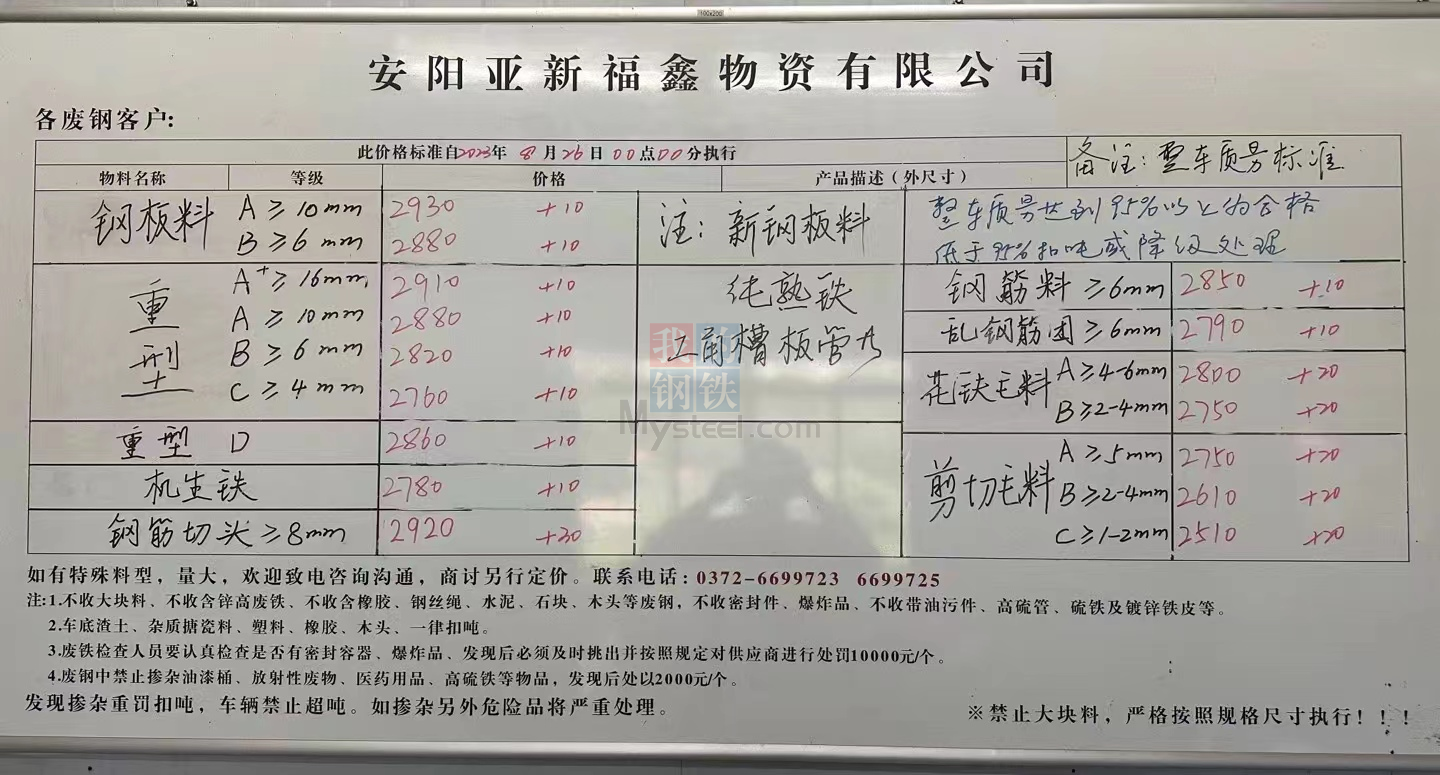 100x200
安阳亚新福鑫物资有限公司
各废钢客户:
此价格标准自2023年 8月26日00点00分执行
备注: 整车质另标准
物料名称 等级 价格 产品描述（外尺寸）
钢板料 A ≥ 10mm 2930 +10
B ≥ 6mm 2880 +10
注: 新钢板料
整车质另达到95%以上为合格
低于95%扣吨或降级处理
重型 A⁺ ≥ 16mm 2910 +10
A ≥ 10mm 2880 +10
B ≥ 6mm 2820 +10
C ≥ 4mm 2760 +10
纯熟铁
工角槽板管
重型 D 2860 +10
机生铁 2780 +10
钢筋切头 ≥8mm 2920 +30
钢筋料 ≥6mm 2850 +10
乱钢筋团 ≥6mm 2790 +10
花铁毛料 A≥4-6mm 2800 +20
B≥2-4mm 2750 +20
剪切毛料 A ≥5mm 2750 +20
B≥2-4mm 2610 +20
C≥1-2mm 2510 +20
我的钢铁
Mysteel.com
如有特殊料型，量大，欢迎致电咨询沟通，商讨另行定价。联系电话: 0372-6699723 6699725
注:1.不收大块料、不收含锌高废铁、不收含橡胶、钢丝绳、水泥、石块、木头等废钢，不收密封件、爆炸品、不收带油污件、高硫管、硫铁及镀锌铁皮等。
2.车底渣土、杂质搪瓷料、塑料、橡胶、木头、一律扣吨。
3.废铁检查人员要认真检查是否有密封容器、爆炸品、发现后必须及时挑出并按照规定对供应商进行处罚10000元/个。
4.废钢中禁止掺杂油漆桶、放射性废物、医药用品、高硫铁等物品，发现后处以2000元/个。
发现掺杂重罚扣吨，车辆禁止超吨。如掺杂另外危险品将严重处理。
※禁止大块料，严格按照规格尺寸执行！！！